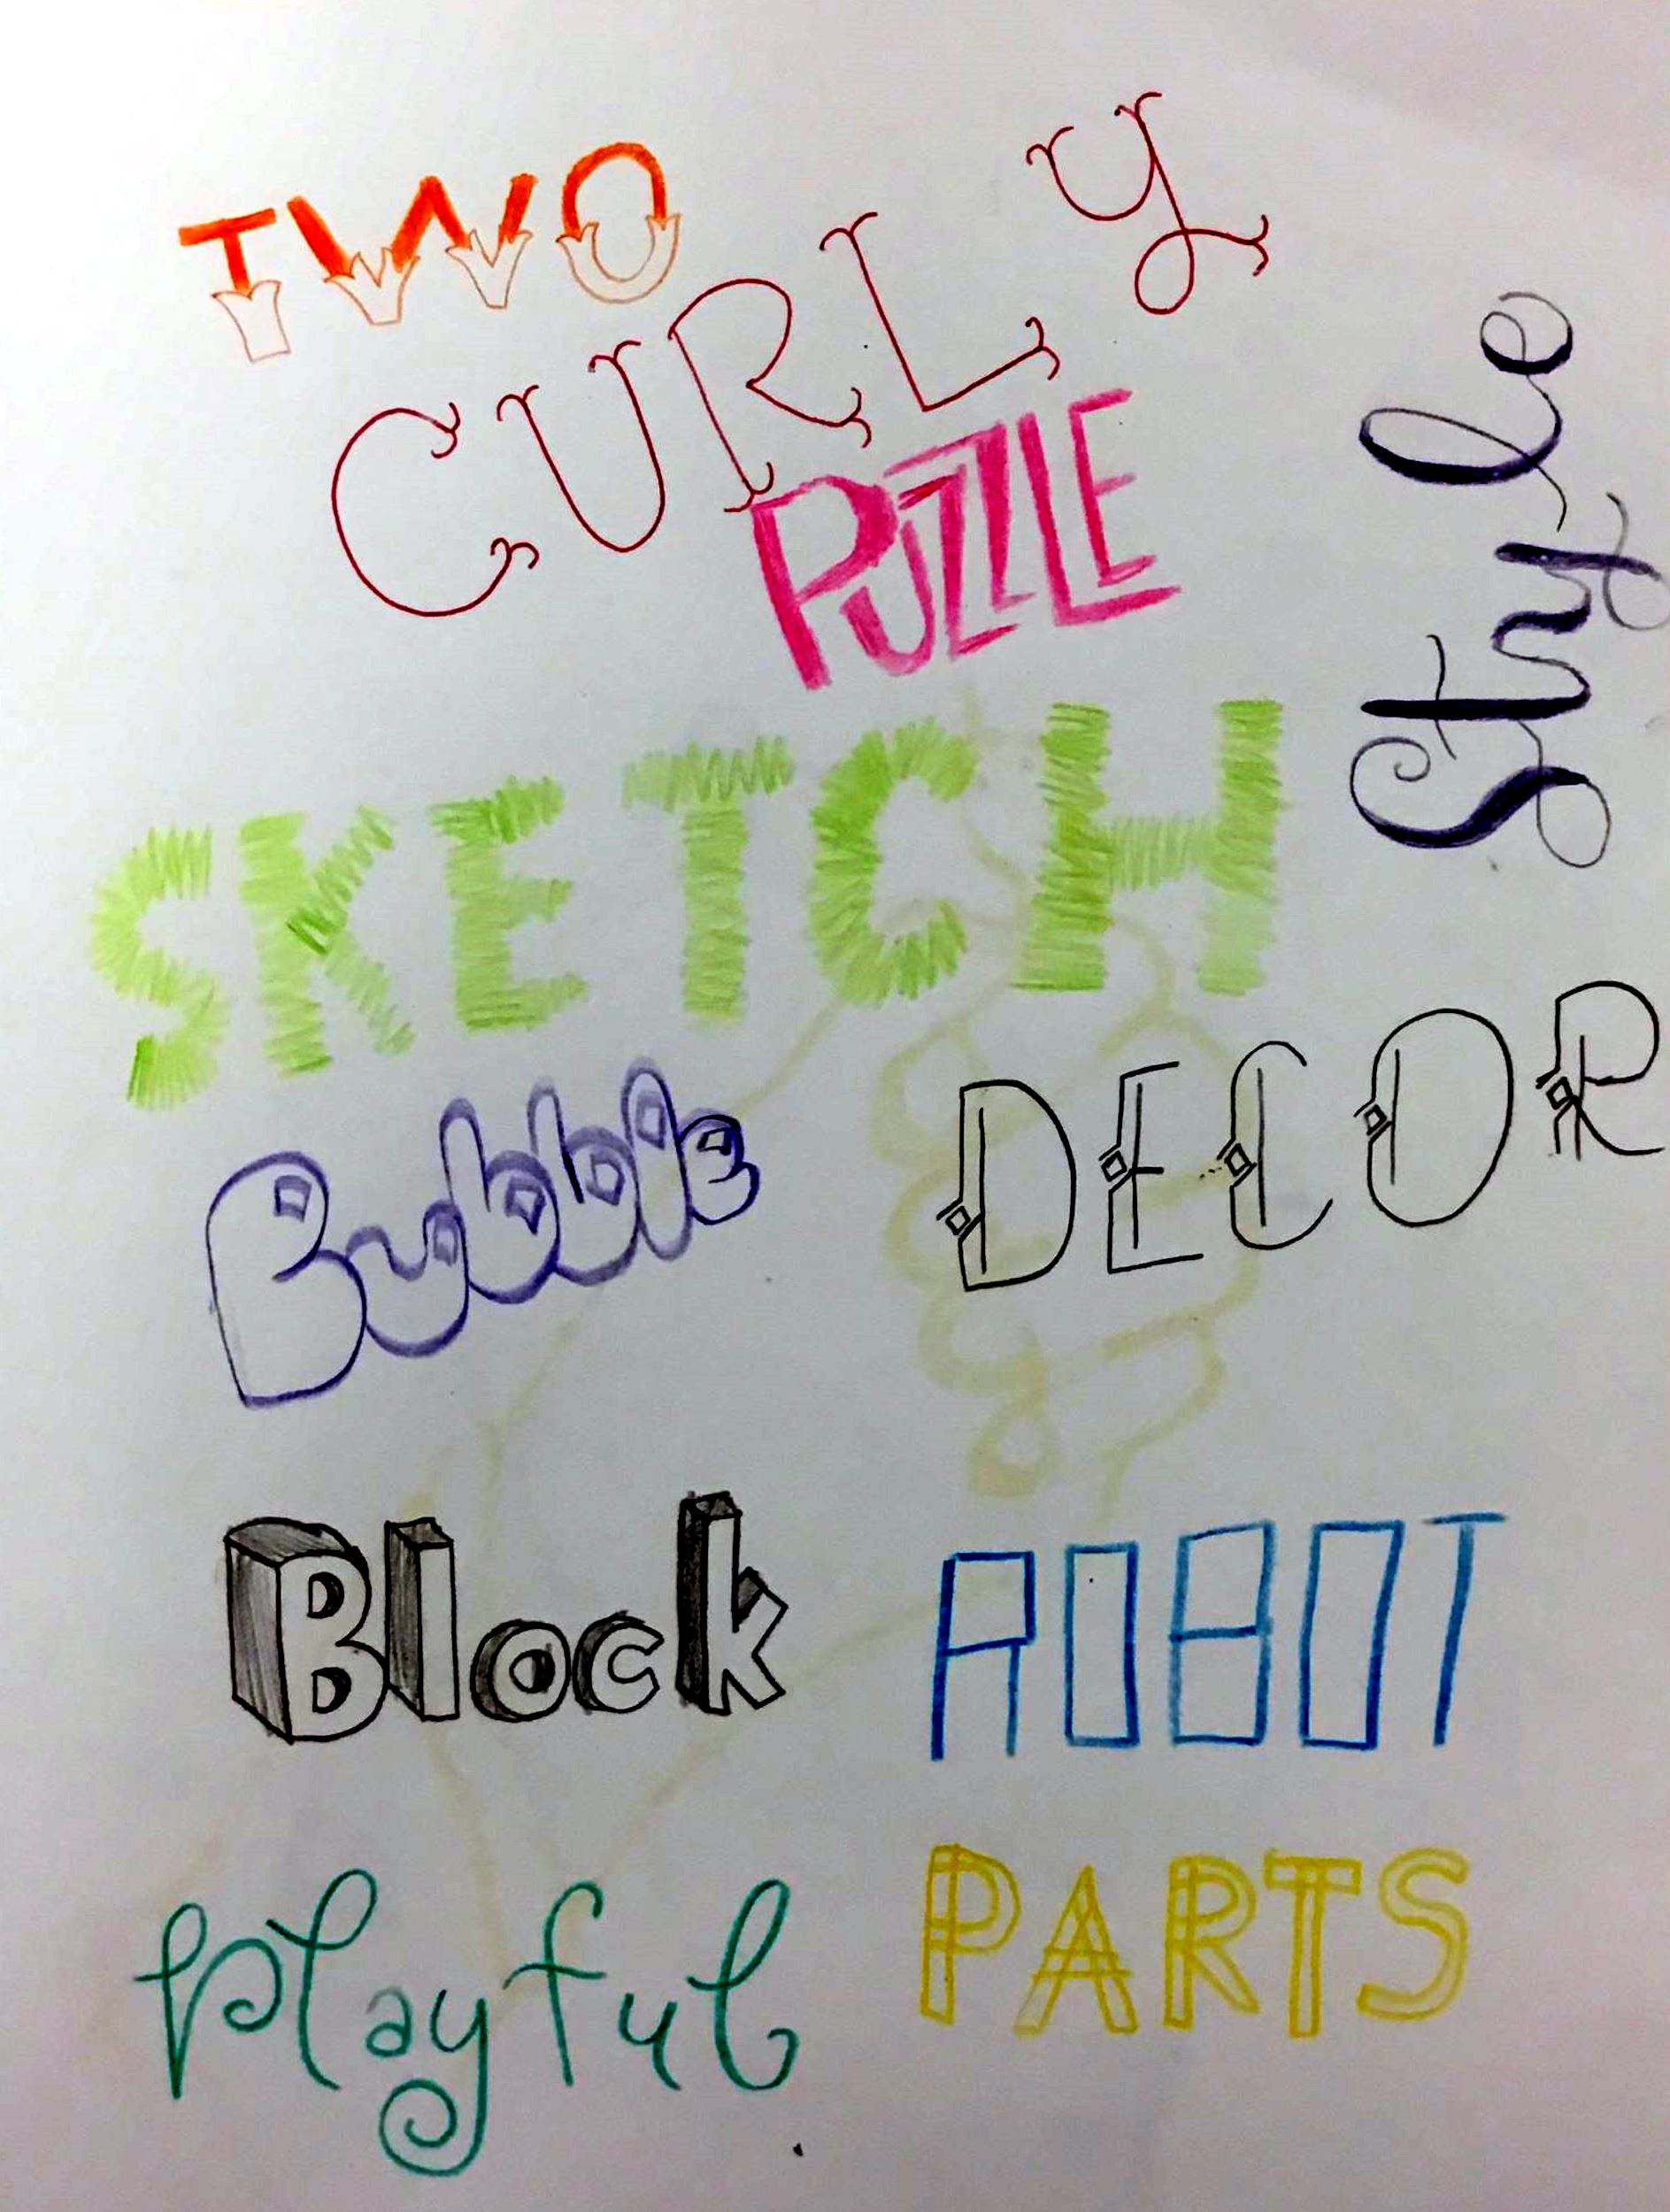 TWO
CURLY
PUZZLE
Style
SKETCH
Bubble
DECOR
Block
ROBOT
Playful
PARTS